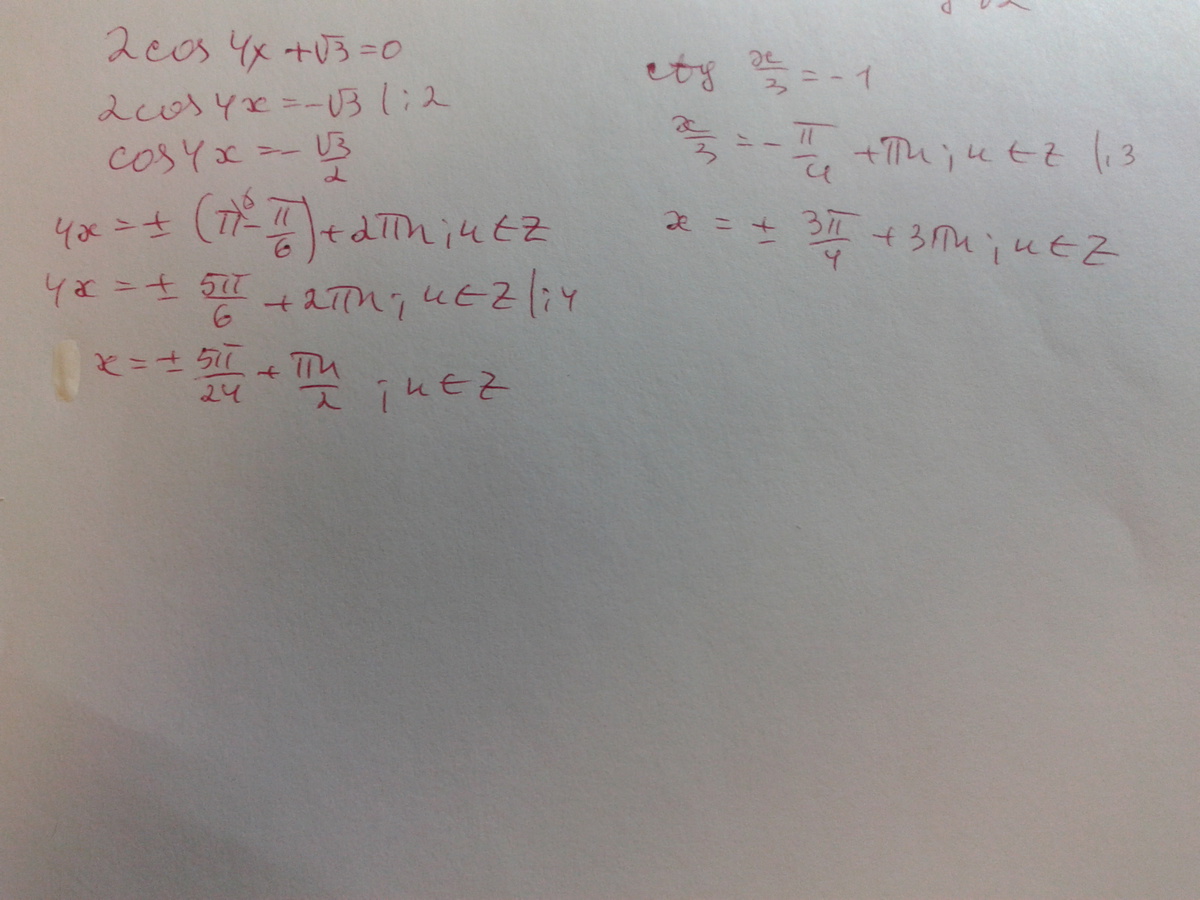 2cos 4x + √3 = 0
2cos 4x = -√3 |:2
cos 4x = - √3/2
4x = ± (π⁶ - π/6) + 2πn; n ∈ Z
4x = ± 5π/6 + 2πn; n ∈ Z |:4
x = ± 5π/24 + πn/2 ; n ∈ Z
ctg x/3 = -1
x/3 = - π/4 + πn; n ∈ Z |.3
x = ± 3π/4 + 3πn; n ∈ Z